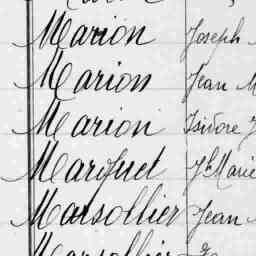 Marion Joseph
Marion Jean M
Marion Isidore J
Marquet Je Marie
Marsollier Jean
Marsollier